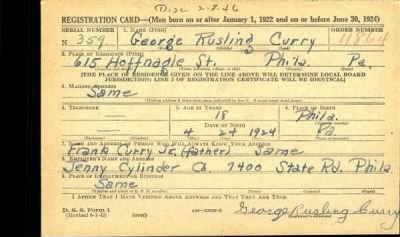 Disc 2-8-46
REGISTRATION CARD—(Men born on or after January 1, 1922 and on or before June 30, 1924)
SERIAL NUMBER 1. NAME (Print) ORDER NUMBER
N 359 George Rusling Curry 11864
2. PLACE OF RESIDENCE (Print)
615 Hoffnagle St. Phila. Pa.
[THE PLACE OF RESIDENCE GIVEN ON THE LINE ABOVE WILL DETERMINE LOCAL BOARD
JURISDICTION; LINE 2 OF REGISTRATION CERTIFICATE WILL BE IDENTICAL]
3. MAILING ADDRESS
Same
4. TELEPHONE 5. AGE IN YEARS 6. PLACE OF BIRTH
18 Phila.
DATE OF BIRTH
4 24 1924 Pa
7. NAME AND ADDRESS OF PERSON WHO WILL ALWAYS KNOW YOUR ADDRESS
Frank Curry Jr. (father) Same
8. EMPLOYER'S NAME AND ADDRESS
Jenny Cylinder Co. 7400 State Rd. Phila
9. PLACE OF EMPLOYMENT OR BUSINESS
Same
I AFFIRM THAT I HAVE VERIFIED ABOVE ANSWERS AND THAT THEY ARE TRUE.
D. S. S. Form 1
(Revised 6-1-42) George Rusling Curry